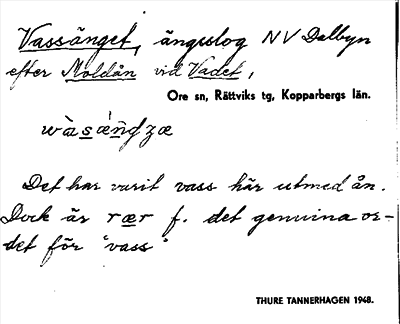 Vassänget, ängsslog NV Dalbyn
efter Moldån vid Vadet,
Ore sn, Rättviks tg, Kopparbergs län.
Det har varit vass här utmed ån.
Dock är rær f. det genuina or-
det för "vass"
THURE TANNERHAGEN 1948.